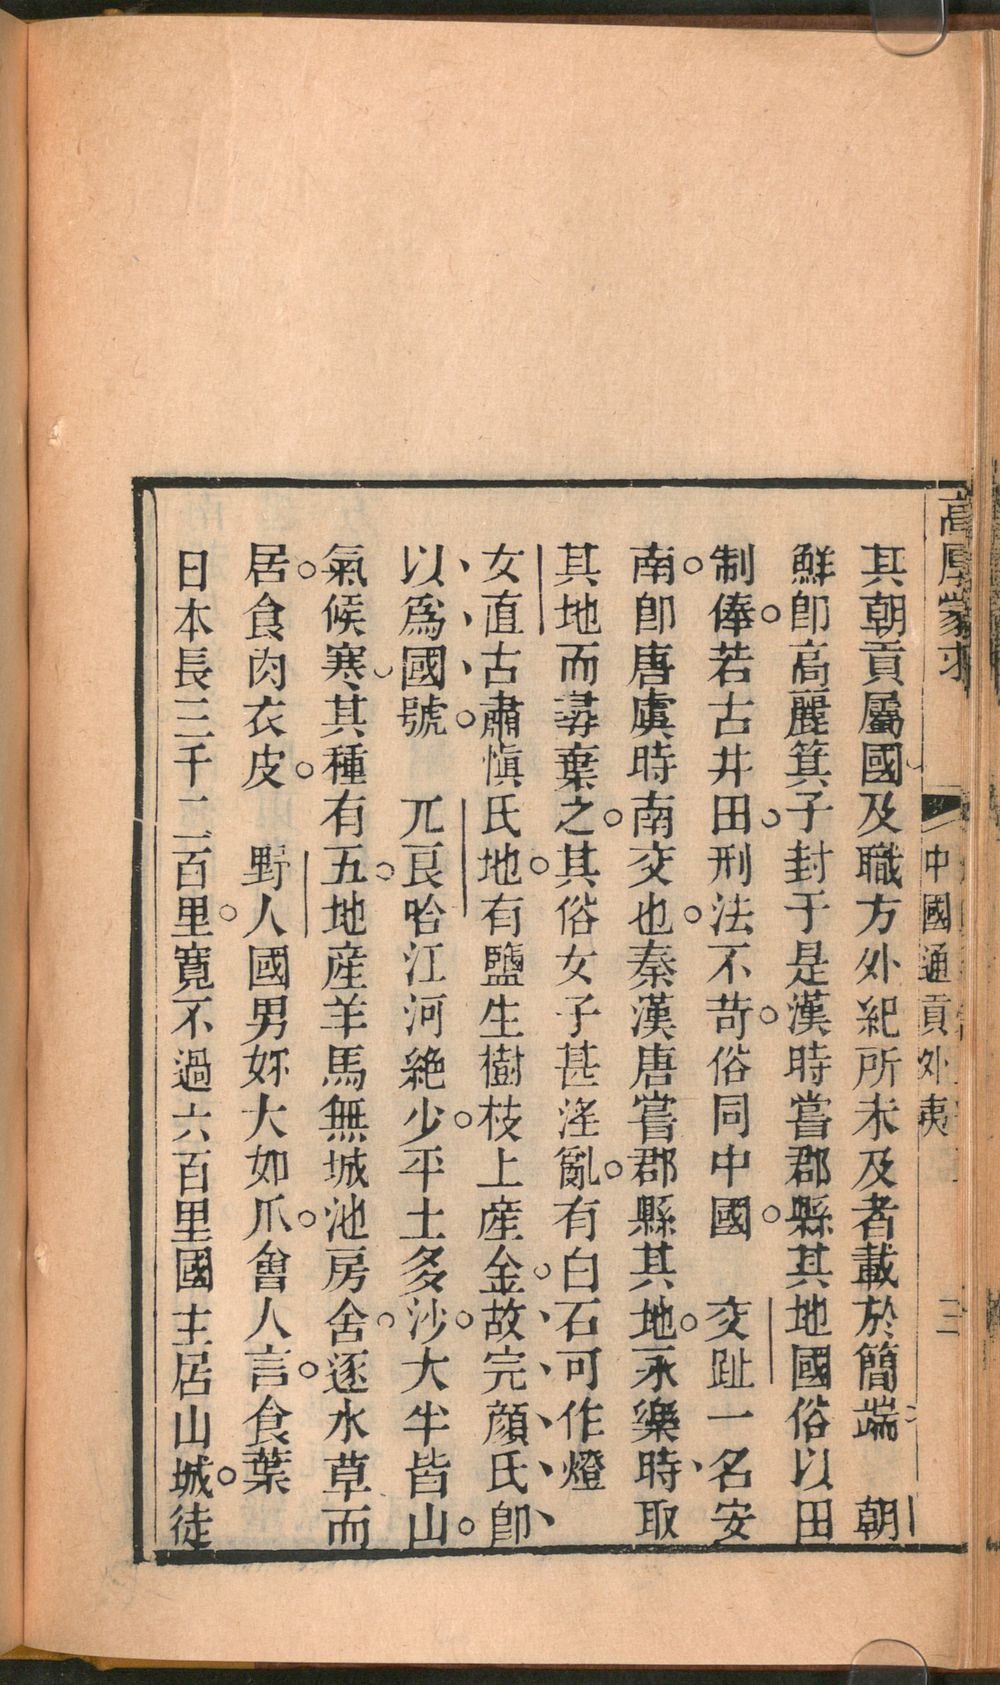 高厚蒙求
中國通貢外夷
三
其朝貢屬國及職方外紀所未及者載於簡端　朝
鮮卽高麗箕子封于是漢時嘗郡縣其地國俗以田
制俸若古井田刑法不苛俗同中國　交趾一名安
南卽唐虞時南交也秦漢唐嘗郡縣其地永樂時取
其地而尋棄之其俗女子甚淫亂有白石可作燈
女直古肅愼氏地有鹽生樹枝上産金故完顔氏卽
以爲國號　兀良哈江河絶少平土多沙大半皆山
氣候寒其種有五地産羊馬無城池房舍逐水草而
居食肉衣皮　野人國男妳大如爪會人言食葉
日本長三千二百里寬不過六百里國主居山城徒